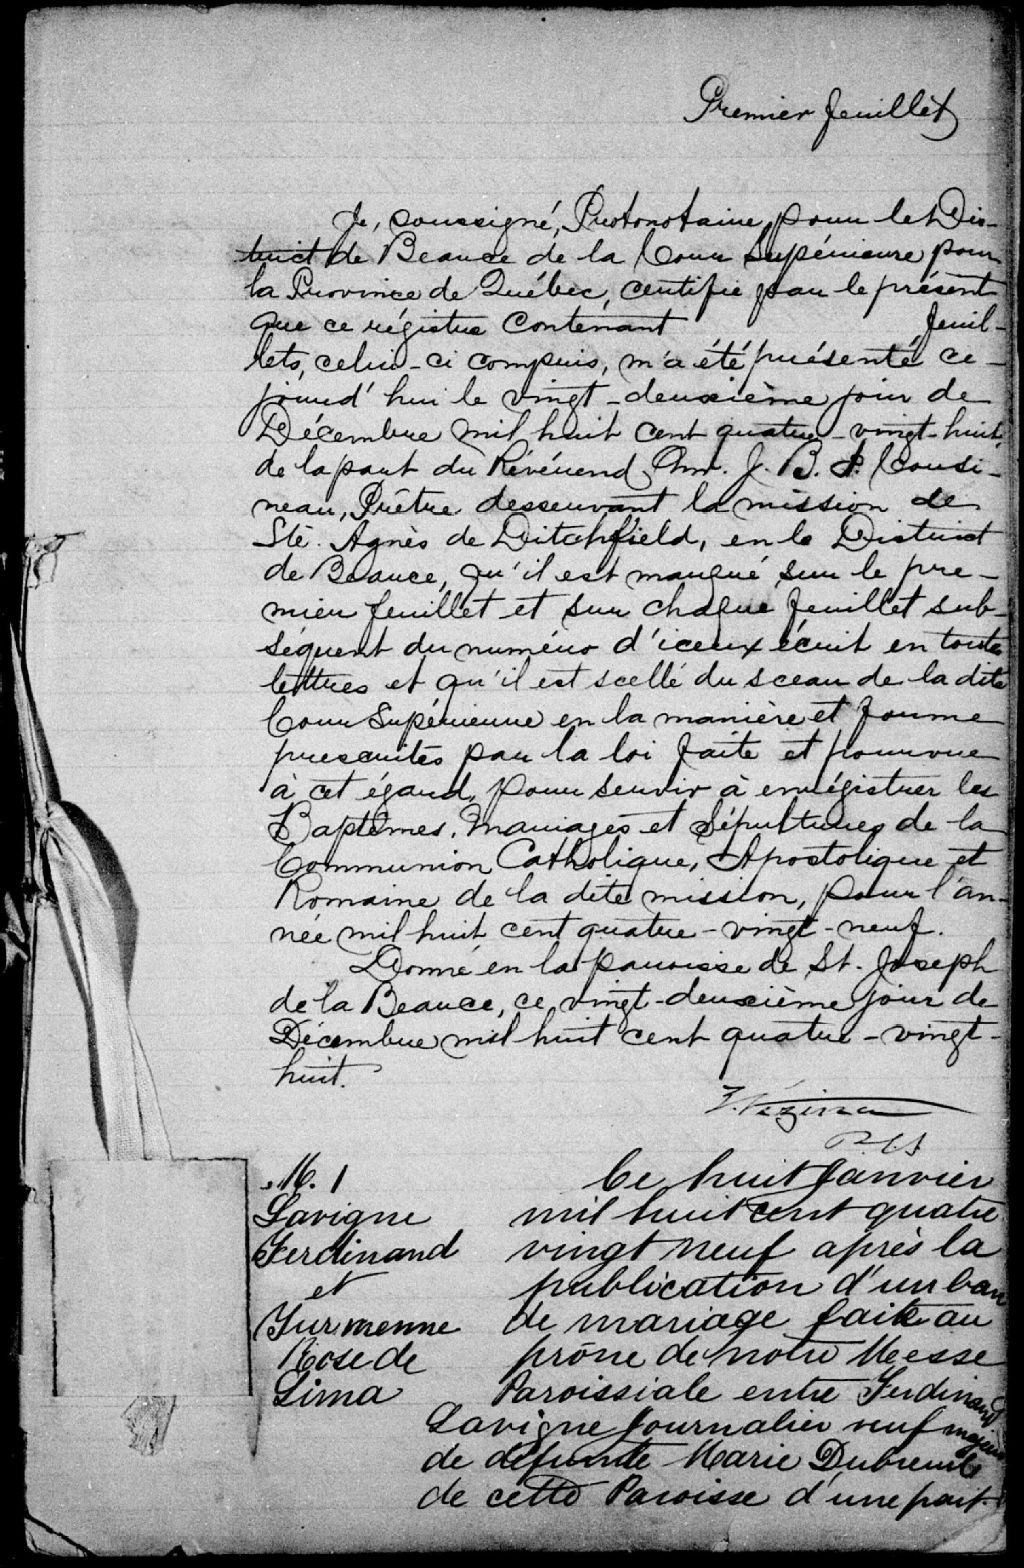 Premier feuillet
Je, soussigné, Protonotaire, pour le Dis-
trict de Beauce de la Cour Supérieure pour
la Province de Québec, certifie par le présent
que ce régistre contenant feuil-
lets, celui-ci compris, m'a été présenté ce-
jourd'hui le vingt-deuxième jour de
Décembre mil huit cent quatre-vingt-huit,
de la part du Révérend Mr. J. B. A. Cousi-
neau, Prêtre desservant la mission de
Ste. Agnès de Ditchfield, en le District
de Beauce, qu'il est marqué sur le pre-
mier feuillet et sur chaque feuillet sub-
séquent du numéro d'iceux écrit en toutes
lettres et qu'il est scellé du sceau de la dite
Cour Supérieure en la manière et forme
prescrites par la loi faite et pourvue
à cet égard, pour servir à enrégistrer les
Baptêmes, Mariages et Sépultures de la
Communion Catholique, Apostolique et
Romaine de la dite mission, pour l'an-
née mil huit cent quatre-vingt-neuf.
Donné en la paroisse de St. Joseph
de la Beauce, ce vingt-deuxième jour de
Décembre mil huit cent quatre-vingt-
huit.
Vézina
P C S
M. 1
Lavigne
Ferdinand
et
Rose de
Lima
Ce huit Janvier
mil huit cent quatre
vingt neuf après la
publication d'un ban
de mariage faite au
prône de notre Messe
Paroissiale entre Ferdinand
Lavigne Journalier veuf majeur
de défunte Marie Dubreuil
de cette Paroisse d'une part